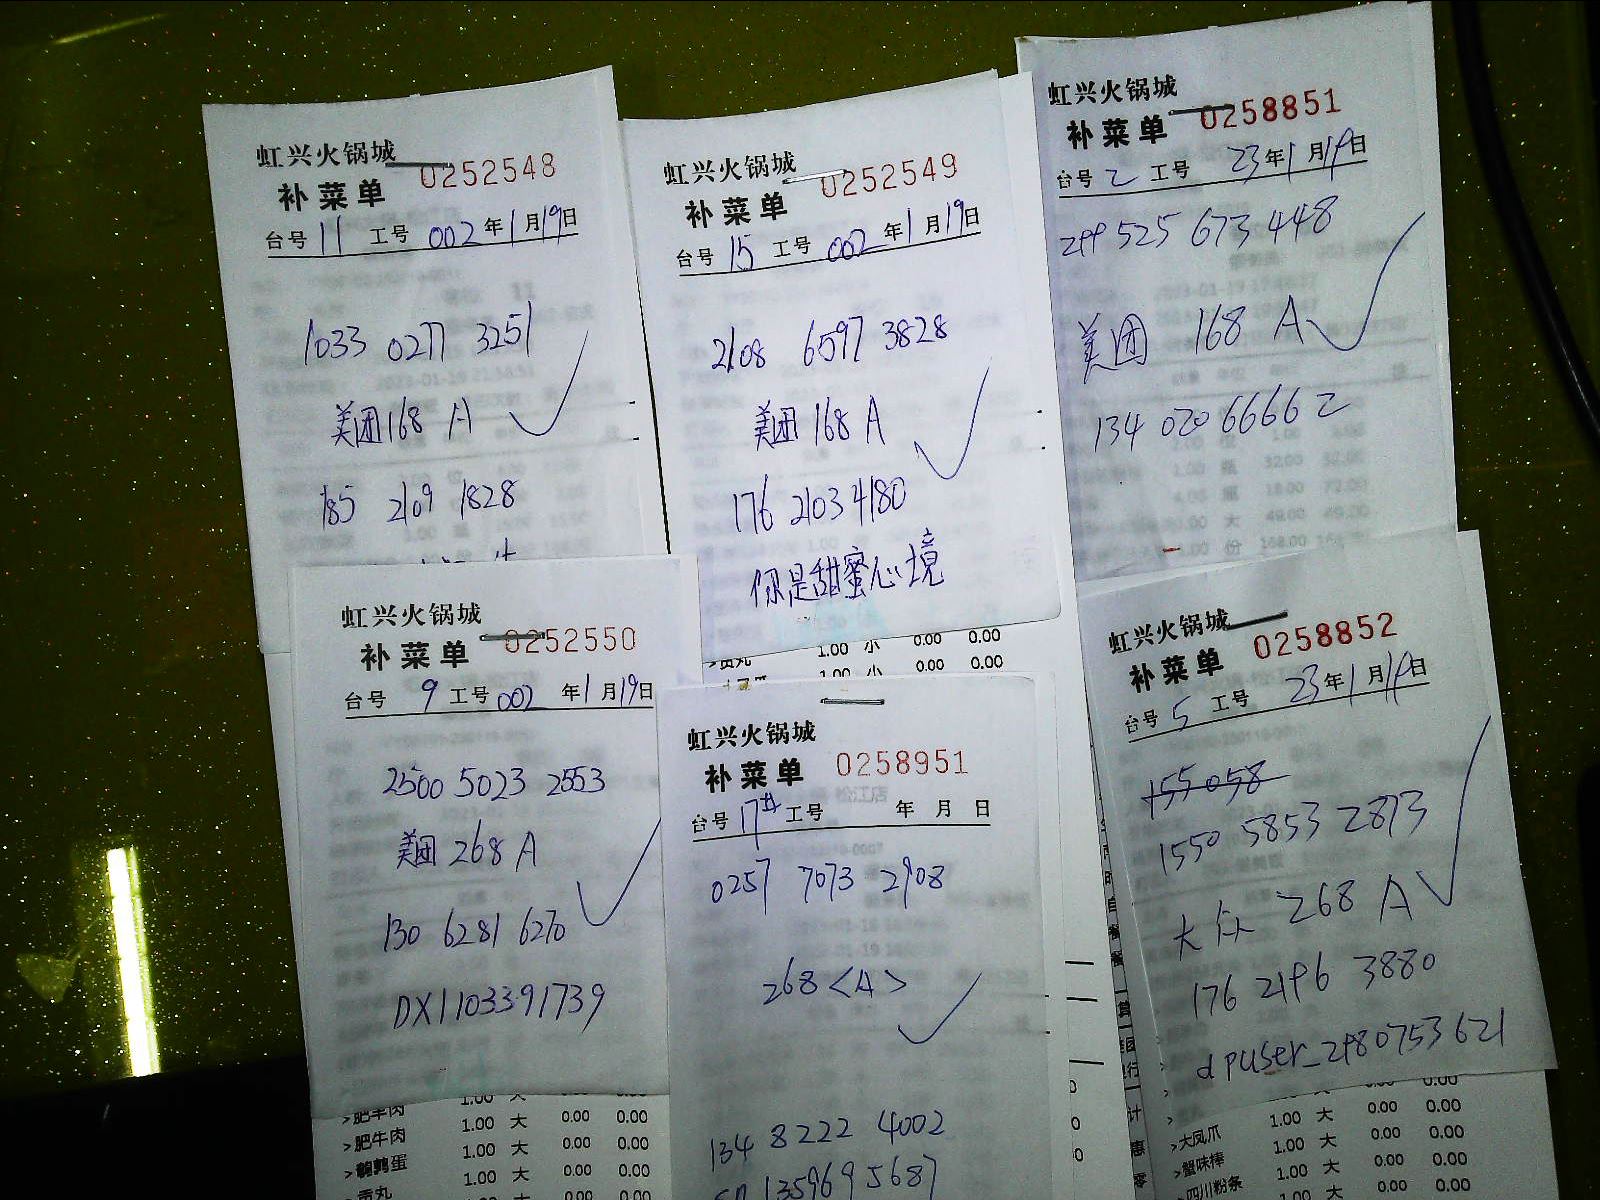 虹兴火锅城
补菜单 0252548
台号 11 工号 002 年 1 月 19 日
1033 0277 3251
美团168 A
185 2109 1828
虹兴火锅城
补菜单 0252549
台号 15 工号 002 年 1 月 19 日
2108 6597 3828
美团168 A
176 2103 4180
你是甜蜜心境
虹兴火锅城
补菜单 0258851
台号 2 工号 23 年 1 月 19 日
299 525 673 448
美团 168 A
134 020 6666 2
虹兴火锅城
补菜单 0252550
台号 9 工号 002 年 1 月 19 日
2500 5023 2553
美团 268 A
130 6281 6270
DX1103391739
>肥羊肉 1.00 大 0.00 0.00
>肥牛肉 1.00 大 0.00 0.00
>鹌鹑蛋 1.00 大 0.00 0.00
>贡丸 1.00 大 0.00 0.00
>贡丸 1.00 小 0.00 0.00
1.00 小 0.00 0.00
虹兴火锅城
补菜单 0258951
台号 17# 工号 年 月 日
0257 7073 2908
268 <A>
134 8222 4002
1359695687
虹兴火锅城
补菜单 0258852
台号 5 工号 23 年 1 月 19 日
155 058
1550 5853 2873
大众 268 A
176 2196 3880
dpuser_2980753621
1.00 大 0.00 0.00
>大凤爪 1.00 大 0.00 0.00
>蟹味棒 1.00 大 0.00 0.00
>四川粉条 1.00 大 0.00 0.00